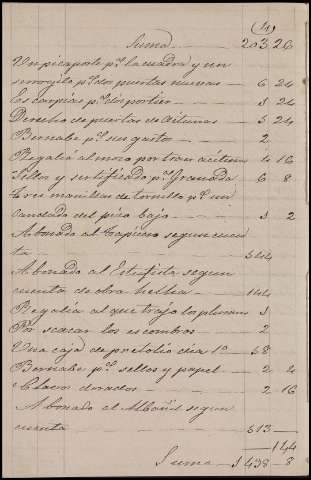 (4)
Suma 203 26
Un picaporte pª la cuadra y un
serrogito pª dos puertas nuevas 6 24
Escarpias pª dos portier 5 24
Derecho de puertas de Aitunas 5 24
Bernabe pª sus gastos 2
Regalia al mozo por traer aceitunas 4 16
Sellos y sertificado pª Granada 6 8
Tres manillas de tornillo pª un
candado del piso bajo 5 2
Abonado al Tapicero segun cuen
ta 544
Abonado al Estufista segun
cuenta de obra hecha 144
Regalia al que trajo las plumas 5
Por sacar los escombros 2
Una caja de petrolio dia 1º 68
Bernabe pª sellos y papel 2 4
Clavos dorados 2 16
Abonado al Albañil segun
cuenta 613
144
Suma 1438 8